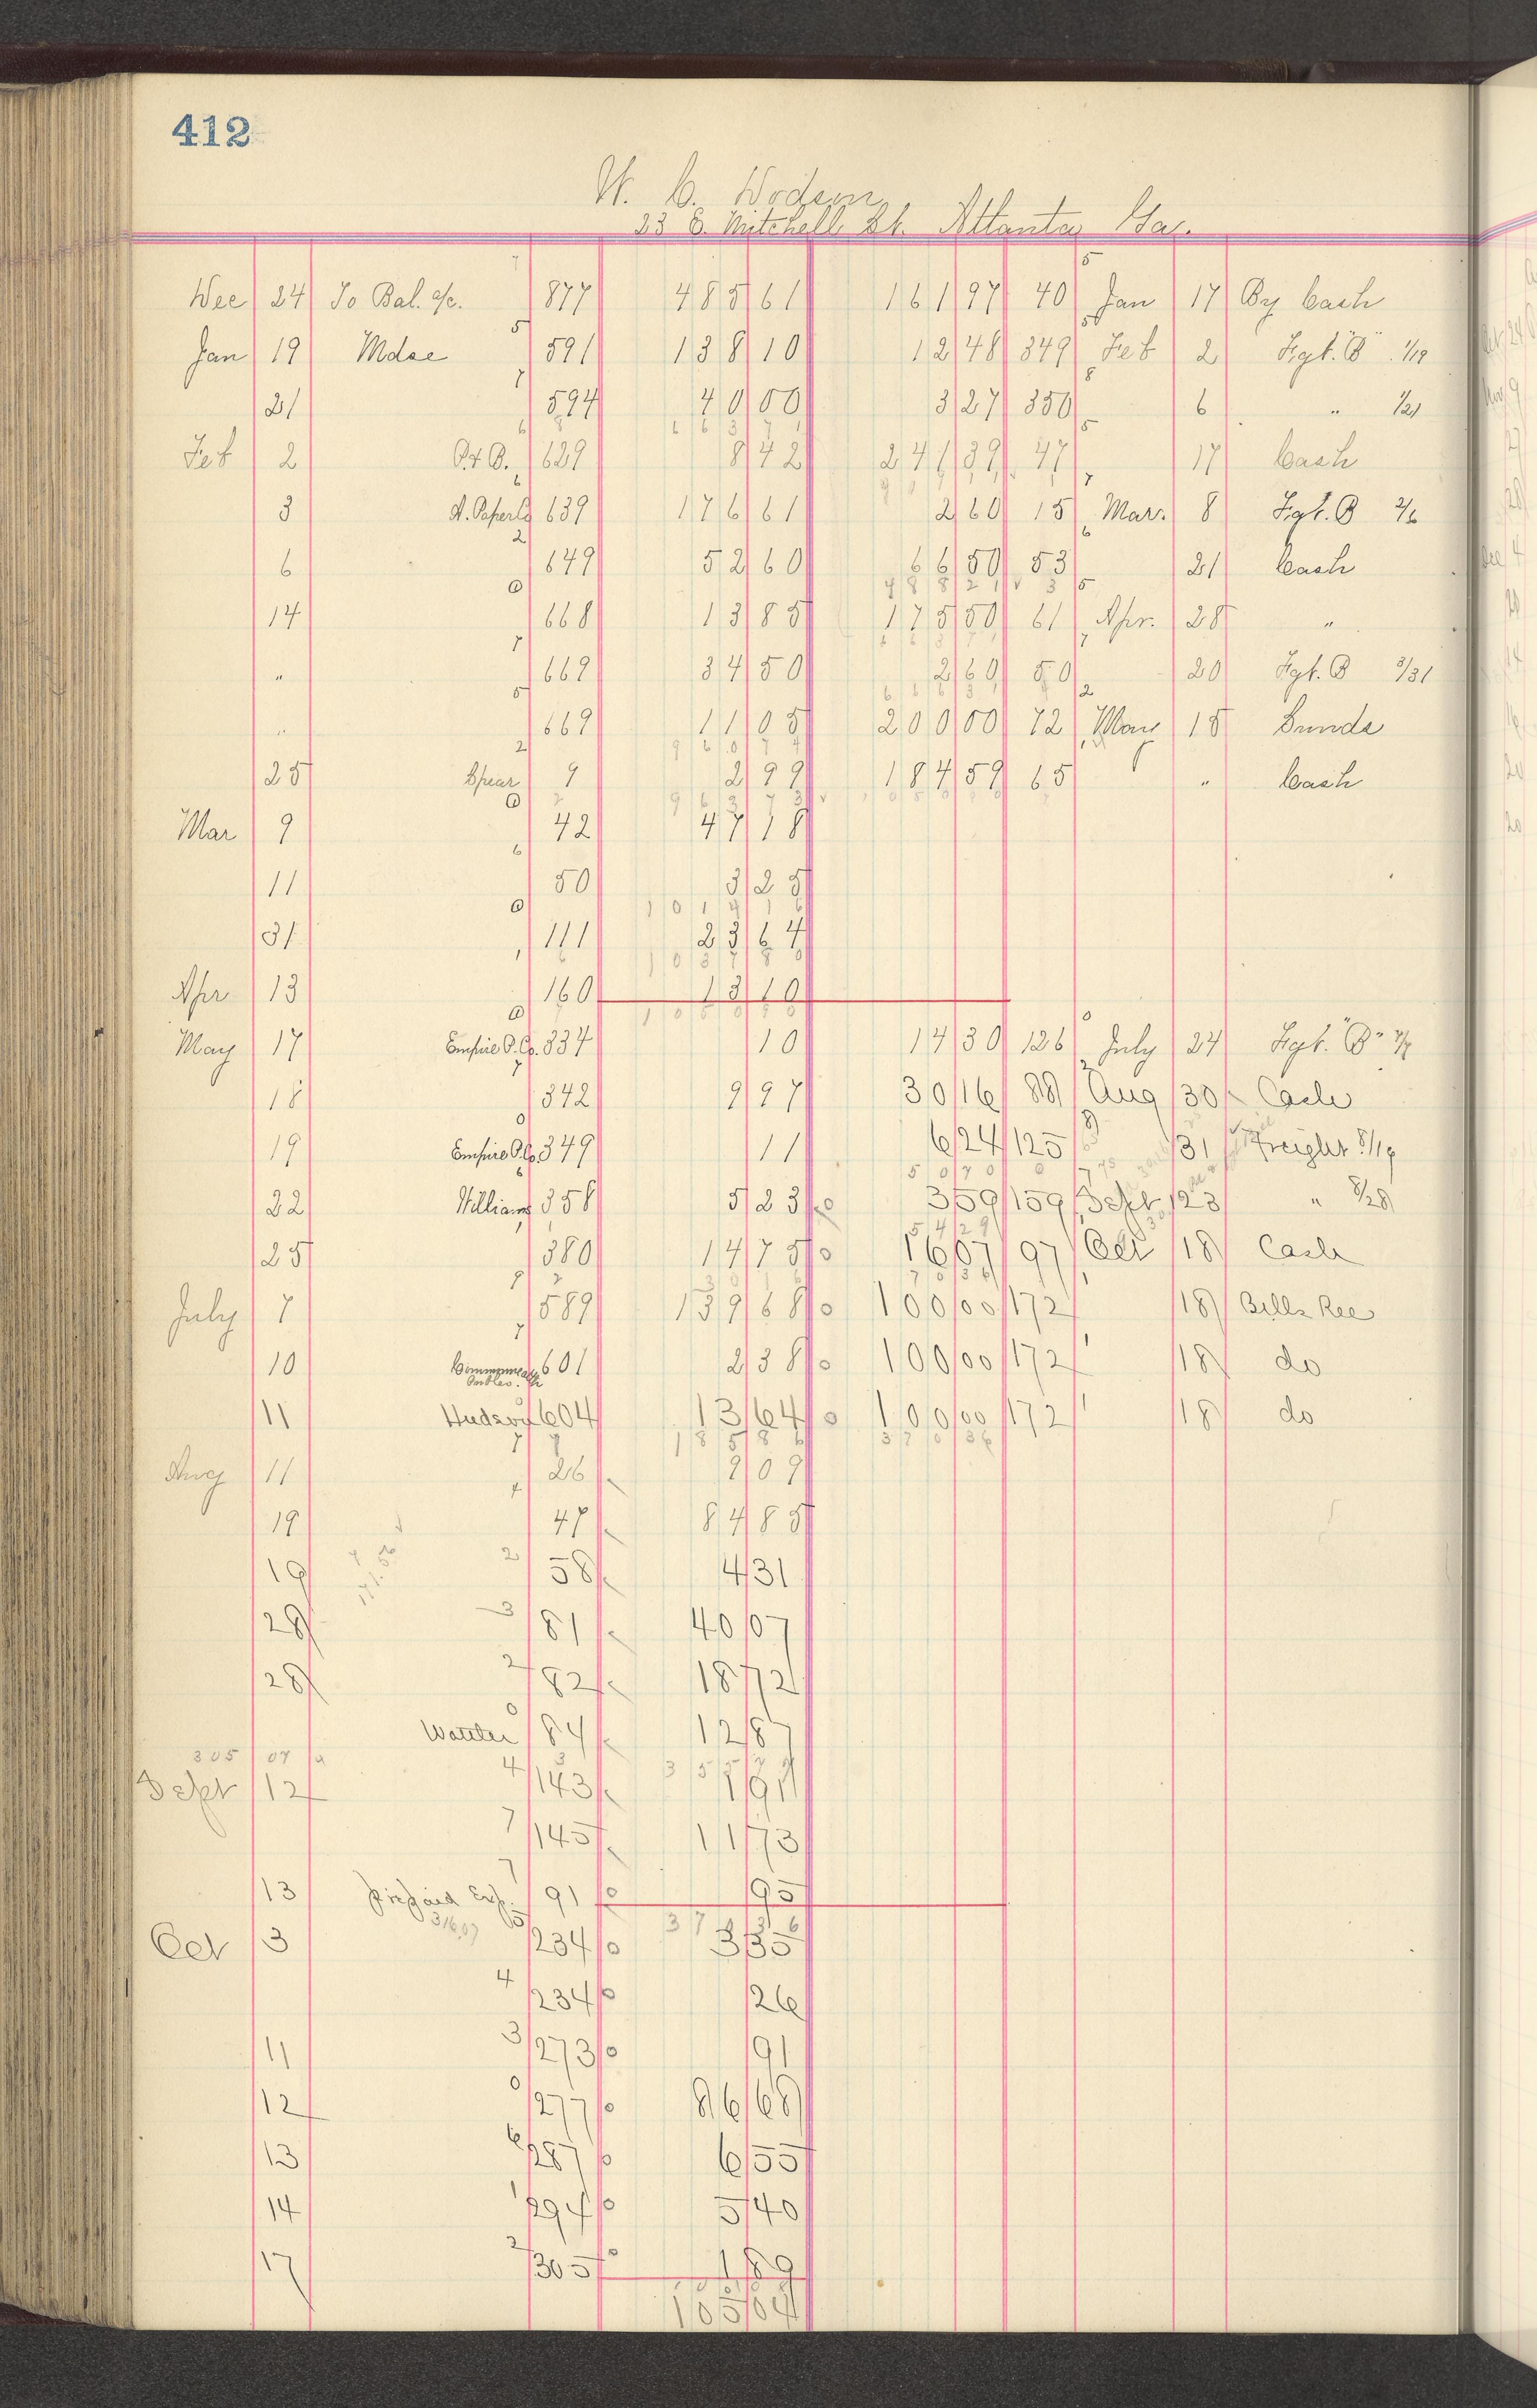 412
W. C. Hodson
23 E. Mitchell St. Atlanta Ga.
Dec 24 To Bal. a/c. 877 485 61 161 97 40 Jan 17 By Cash
Jan 19 Mdse 591 138 10 12 48 349 Feb 2 Fgt. "B" 1/19
21 594 40 00 3 27 350 6 " 1/21
Feb 2 629 8 42 241 39 47 17 Cash
3 639 176 61 2 60 15 Mar. 8 Fgt. B 2/6
6 649 52 60 66 50 53 21 Cash
14 668 13 85 175 50 61 Apr. 28 "
" 669 34 50 2 60 50 20 Fgt. B 3/31
" 669 11 05 200 00 72 May 15 Sunds
25 Spear 9 2 99 184 59 65 " Cash
Mar 9 42 47 18
11 50 3 25
31 111 23 64
Apr 13 160 13 10
May 17 Empire P. Co. 334 10 14 30 126 July 24 Fgt. "B" 7/7
18 342 9 97 30 16 88 Aug 30 Cash
19 Empire P. Co. 349 11 6 24 125 31 Freight 8/19
22 Williams 358 5 23 3 59 159 Sept 23 " 8/28
25 380 14 75 16 07 97 Oct 18 Cash
July 7 589 139 68 100 00 172 18 Bills Rec
10 Commonwealth 601 2 38 100 00 172 18 do
11 Hudson 604 13 64 100 00 172 18 do
Aug 11 26 9 09
19 47 84 85
19 58 4 31
28 81 40 07
28 82 18 72
84 12 87
305 07
Sept 12 143 1 91
145 11 73
13 Prepaid Exp. 91 95
316.07
Oct 3 234 3 35
234 26
11 273 91
12 277 86 68
13 287 6 55
14 294 5 40
17 305 1 89
105 04